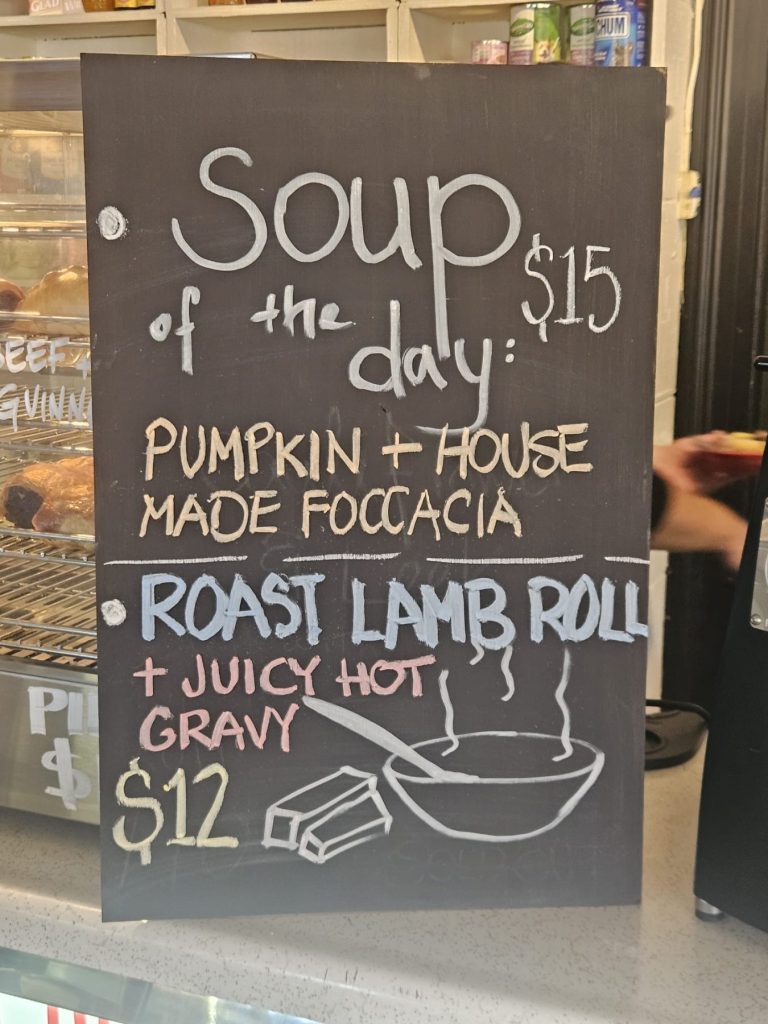 GLAD
CHUM
Soup
$15
of the
day:
PUMPKIN + HOUSE
MADE FOCCACIA
ROAST LAMB ROLL
+ JUICY HOT
GRAVY
$12
BEEF +
$